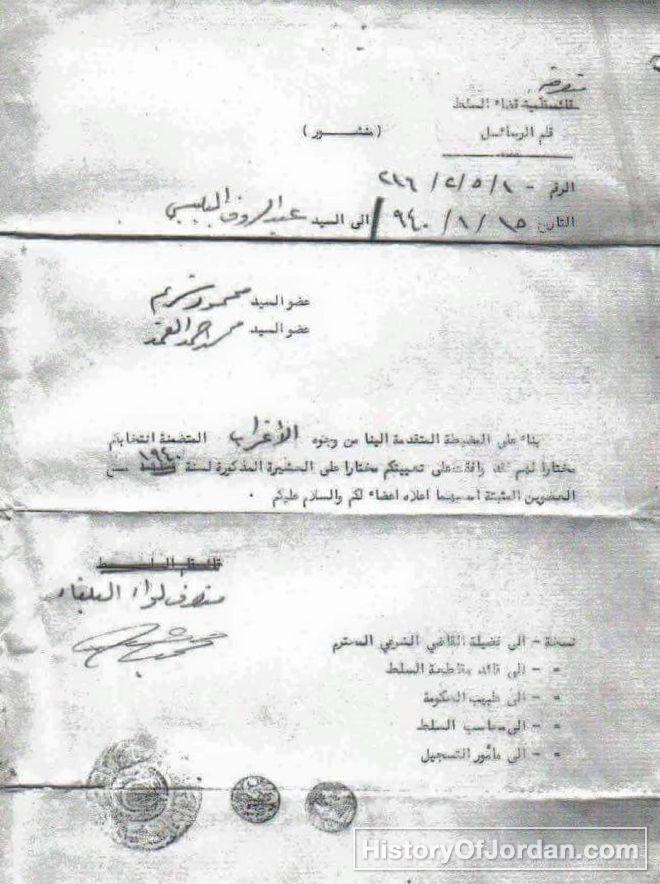 متصرفية
قائمقامية قضاء السلط
قلم الرسائل (منشور)
الرقم - ٢٢٦/٢/٥/١
التاريخ ١٥/١/٩٤٠ الى السيد عبد الرؤف البلبيسي
عضو السيد محمود كريم
عضو السيد محمد احمد العمد
بناء على المضبطة المتقدمة الينا من وجوه الأغراب المتضمنة انتخابكم
مختارا لهم فقد وافقت على تعيينكم مختارا على العشيرة المذكورة لسنة ١٩٤٠ مع
العضوين المثبتة اسميهما اعلاه اعضاء لكم والسلام عليكم .
متصرف لواء البلقاء
نسخة - الى فضيلة القاضي الشرعي المحترم
" - الى قائد مقاطعة السلط
" - الى طبيب الحكومة
" - الى محاسب السلط
" - الى مأمور التسجيل
HistoryOfJordan.com